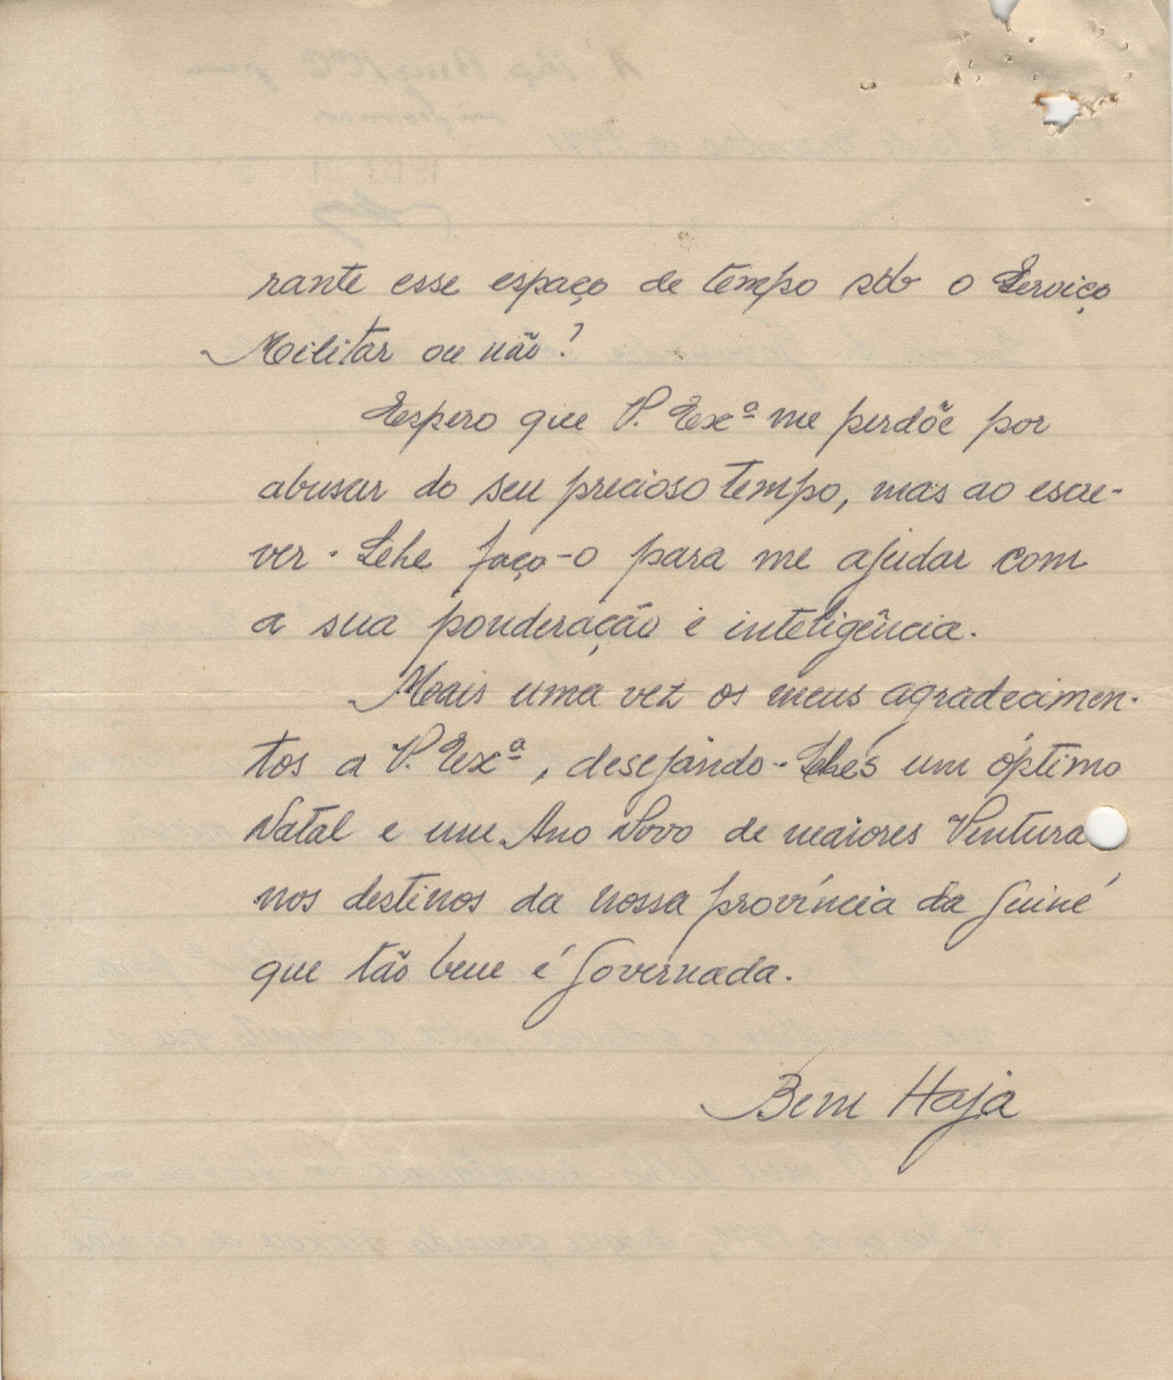 rante esse espaço de tempo sob o Serviço
Militar ou não?
Espero que V. Exª me perdõe por
abusar do seu precioso tempo, mas ao escre-
ver-Lhe faço-o para me ajudar com
a sua ponderação e inteligência.
Mais uma vez os meus agradecimen-
tos a V. Exª, desejando-Lhes um óptimo
Natal e um Ano Novo de maiores Ventura
nos destinos da nossa província da Guiné
que tão bem é Governada.
Bem Haja